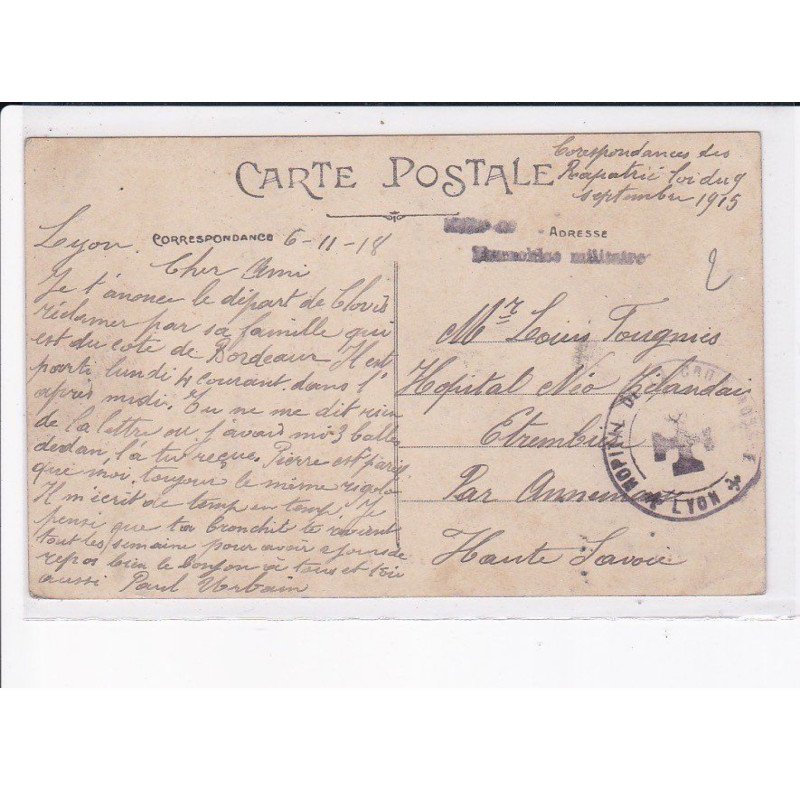 Corespondances des
Rapatrié loi du 9
septembre 1915
CARTE POSTALE
CORRESPONDANCE
ADRESSE
militaire
2
Lyon 6-11-18
Cher Ami
Je t'anonce le départ de Clovis
réclamer par sa famille qui
est du coté de Bordeaux Il est
parti lundi 4 courant dans l'
après midi. Tu ne me dit rien
de la lettre ou j'avais mi 3 balles
dedan, l'a tu reçue. Pierre est pareil
que moi toujour le même rigolo
Il m'écrit de temp en temp. Je
pensi que ta bronchit te revient
tout les semaine pour avoir jours de
repos bien le bonjour à tous et toi
aussi Paul Urbain
Mr Louis Tougnies
Hopital Néo Zélandais
Etrembière
Par Annemasse
Haute Savoie
HOPITAL DE LA CROIX ROUGE
LYON